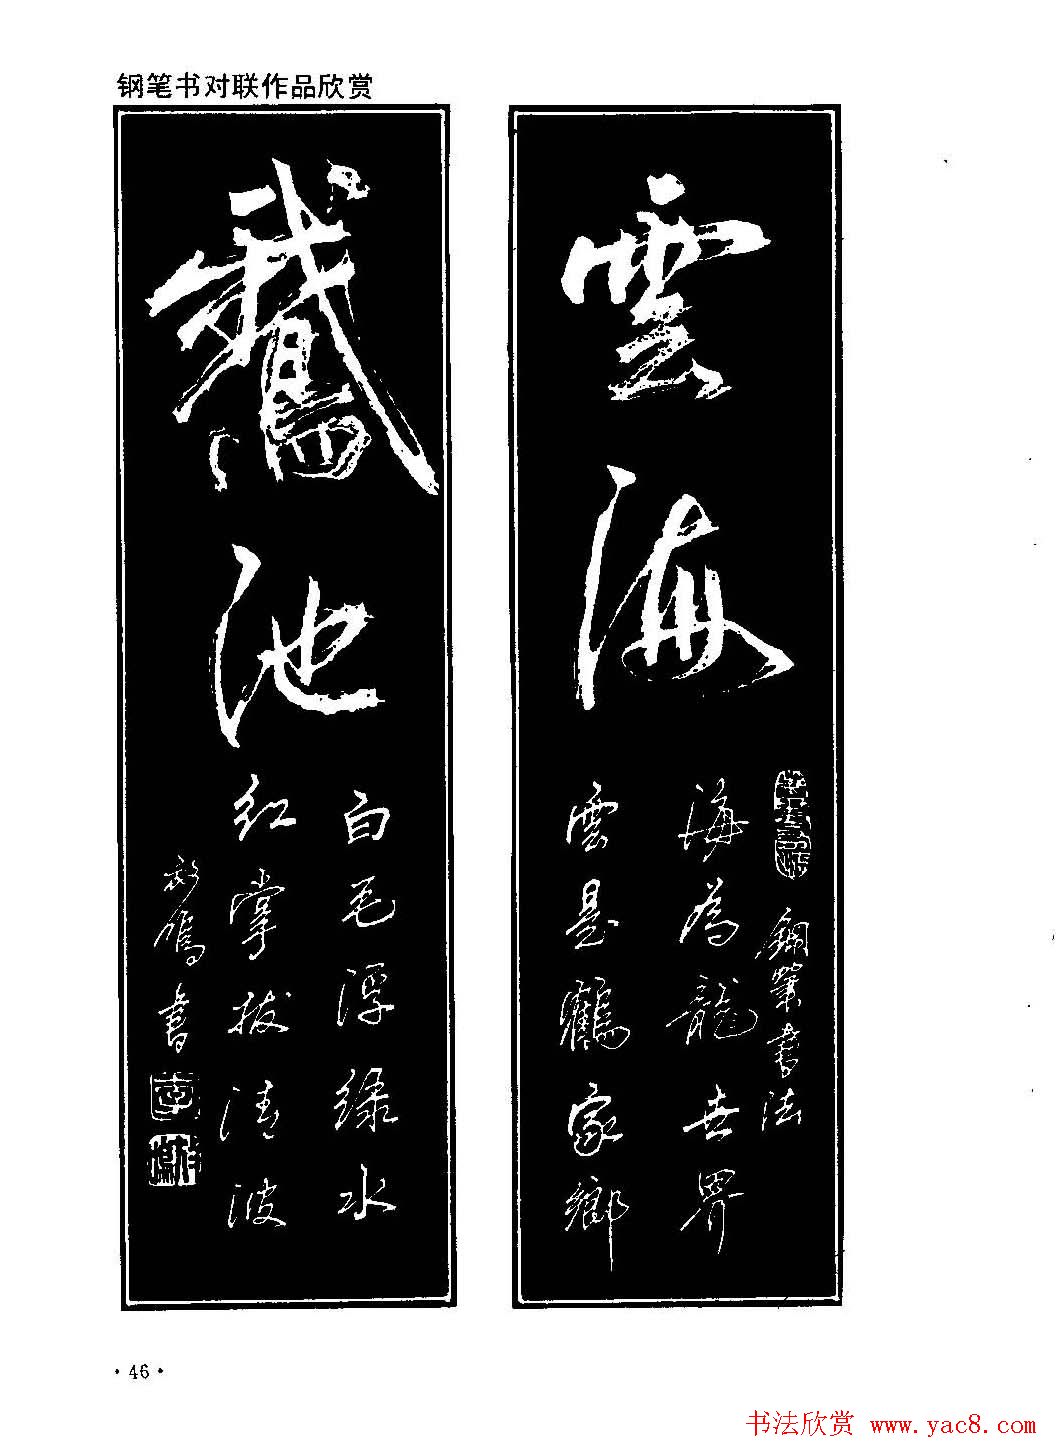 钢笔书对联作品欣赏
雲海
钢筆書法
海為龍世界
雲是鶴家鄉
鵞池
白毛浮绿水
红掌拨清波
書
·46·
书法欣赏 www.yac8.com